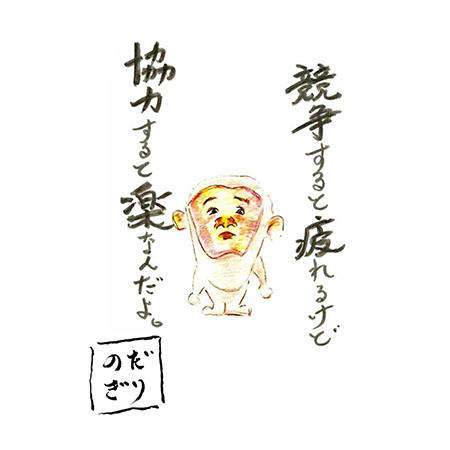 競争すると疲れるけど
協力すると楽なんだよ。
だり
のぎ